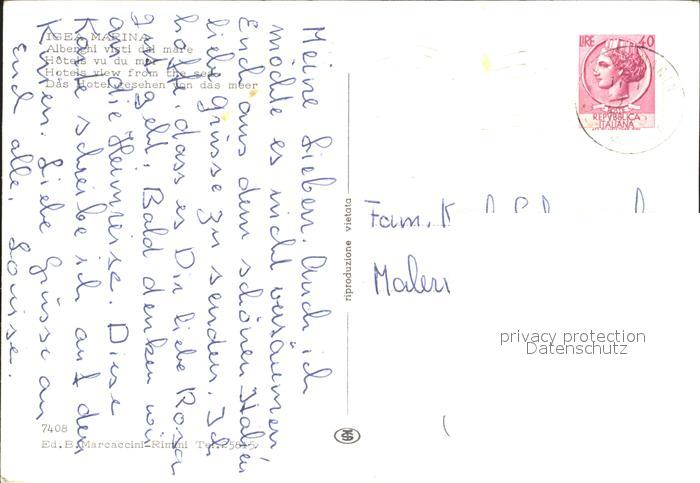 IGEA MARINA
Alberghi visti dal mare
Hôtels vu du mer
Hotels view from the sea
Das Hotel gesehen von das meer
Meine Lieben. Auch ich
möchte es nicht versäumen
Euch aus dem schönen Italien
liebe grüsse zu senden. Ich
hoffe, dass es Dir liebe Rosa
gut geht. Bald denken wir
an die Heimreise. Diese
Karte schreibe ich auf den
Knien. Liebe Grüsse an
Euch alle. Louise.
7408
Ed. B. Marcaccini-Rimini Tel. 25815
riproduzione vietata
LIRE 40
POSTE
REPVBBLICA
ITALIANA
Fam. K
Maleri
privacy protection
Datenschutz